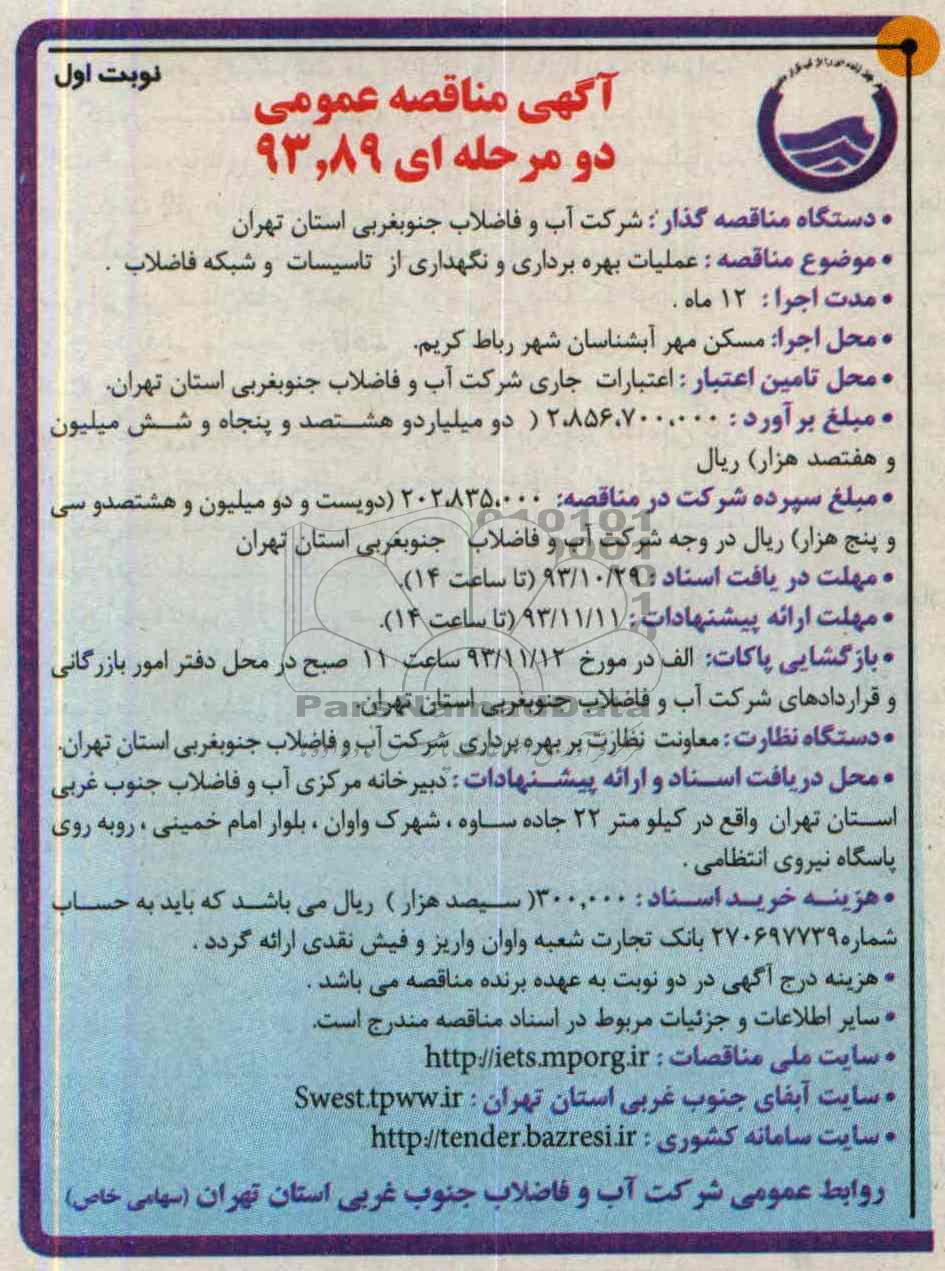 نوبت اول
آگهی مناقصه عمومی
دو مرحله ای ۹۳,۸۹
• دستگاه مناقصه گذار : شرکت آب و فاضلاب جنوبغربی استان تهران
• موضوع مناقصه : عملیات بهره برداری و نگهداری از تاسیسات و شبکه فاضلاب .
• مدت اجرا : ۱۲ ماه .
• محل اجرا: مسکن مهر آبشناسان شهر رباط کریم.
• محل تامین اعتبار : اعتبارات جاری شرکت آب و فاضلاب جنوبغربی استان تهران.
• مبلغ برآورد : ۲،۸۵۶،۷۰۰،۰۰۰ ( دو میلیاردو هشتصد و پنجاه و شش میلیون
و هفتصد هزار) ریال
• مبلغ سپرده شرکت در مناقصه: ۲۰۲،۸۳۵،۰۰۰ (دویست و دو میلیون و هشتصدو سی
و پنج هزار) ریال در وجه شرکت آب و فاضلاب جنوبغربی استان تهران
• مهلت دریافت اسناد : ۹۳/۱۰/۲۹ (تا ساعت ۱۴).
• مهلت ارائه پیشنهادات : ۹۳/۱۱/۱۱ (تا ساعت ۱۴).
• بازگشایی پاکات: الف در مورخ ۹۳/۱۱/۱۲ ساعت ۱۱ صبح در محل دفتر امور بازرگانی
و قراردادهای شرکت آب و فاضلاب جنوبغربی استان تهران.
ParsNamadData
• دستگاه نظارت : معاونت نظارت بر بهره برداری شرکت آب و فاضلاب جنوبغربی استان تهران.
• محل دریافت اسناد و ارائه پیشنهادات : دبیرخانه مرکزی آب و فاضلاب جنوب غربی
استان تهران واقع در کیلو متر ۲۲ جاده ساوه ، شهرک واوان ، بلوار امام خمینی ، روبه روی
پاسگاه نیروی انتظامی .
• هزینه خرید اسناد : ۳۰۰,۰۰۰( سیصد هزار ) ریال می باشد که باید به حساب
شماره۲۷۰۶۹۷۷۳۹ بانک تجارت شعبه واوان واریز و فیش نقدی ارائه گردد .
• هزینه درج آگهی در دو نوبت به عهده برنده مناقصه می باشد .
• سایر اطلاعات و جزئیات مربوط در اسناد مناقصه مندرج است.
• سایت ملی مناقصات : http://iets.mporg.ir
• سایت آبفای جنوب غربی استان تهران : Swest.tpww.ir
• سایت سامانه کشوری : http://tender.bazresi.ir
روابط عمومی شرکت آب و فاضلاب جنوب غربی استان تهران (سهامی خاص)